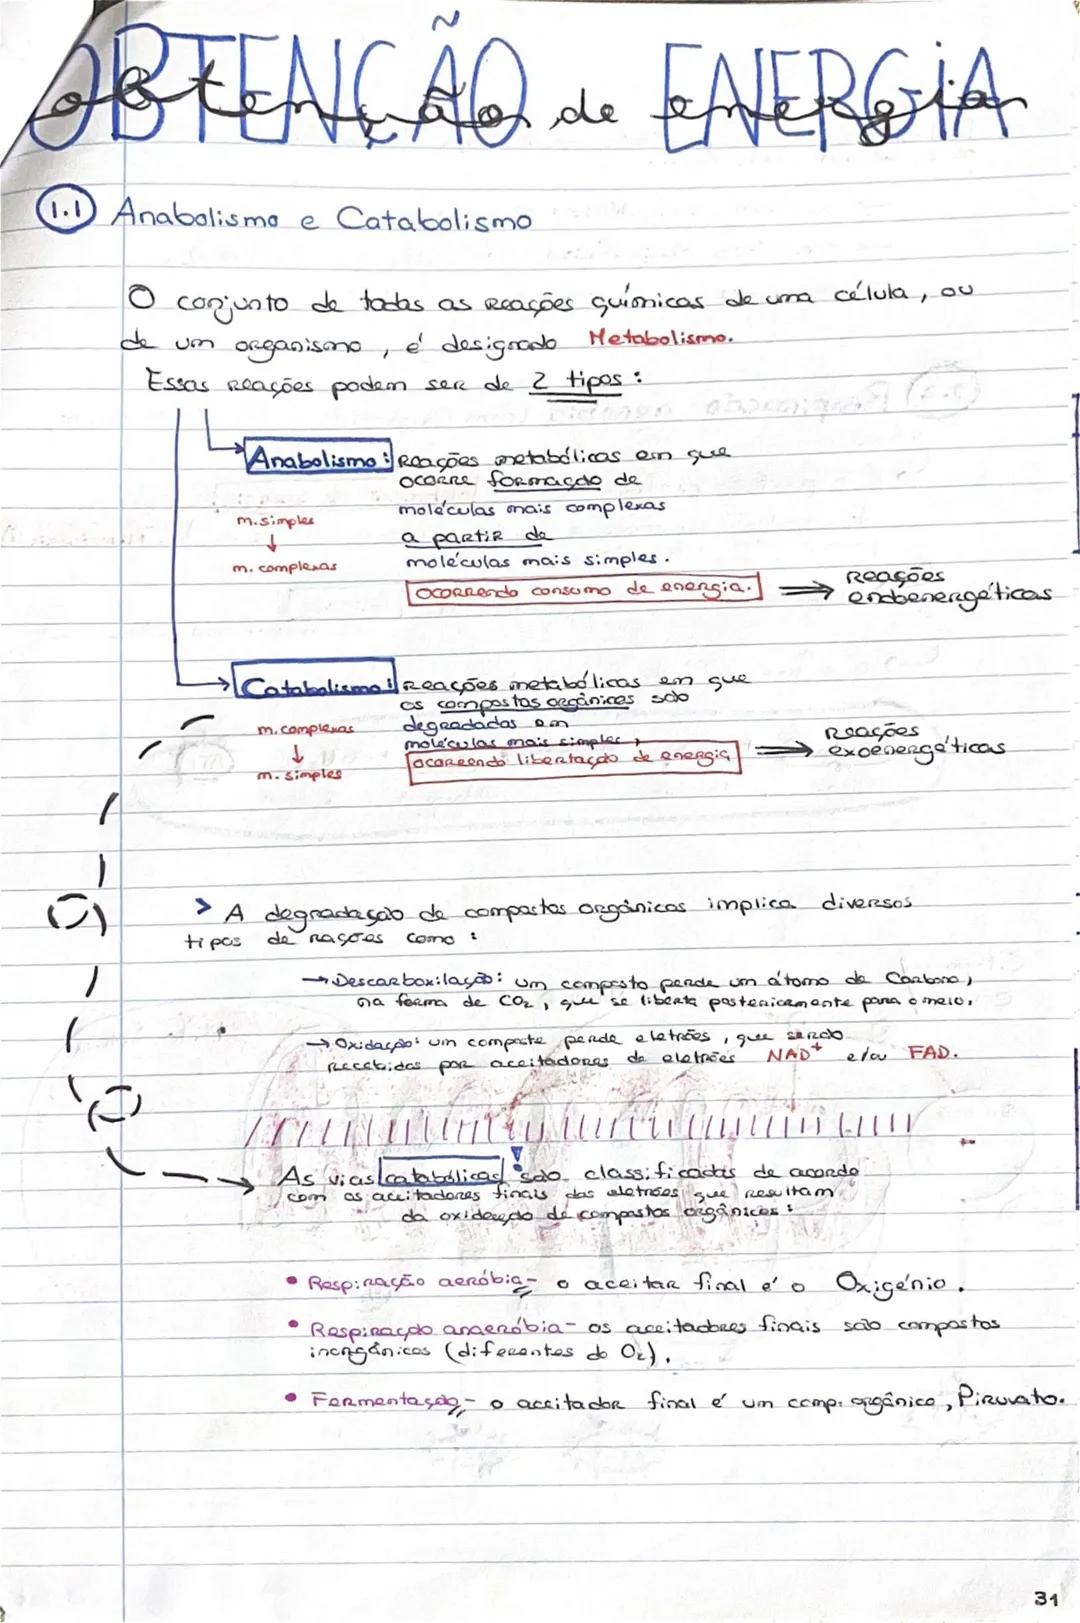 OBTENÇÃO de ENERGIA
obtenção de energia
1.1 Anabolismo e Catabolismo
O conjunto de todas as reações químicas de uma célula, ou
de um organismo, é designado Metabolismo.
Essas reações podem ser de 2 tipos:
Anabolismo: Reações metabólicas em que
ocorre formação de
moléculas mais complexas
a partir de
moléculas mais simples.
ocorrendo consumo de energia.
m. simples
↓
m. complexas
⇒ Reações
endoenergéticas
Catabolismo: Reações metabólicas em que
os compostos orgânicos são
degradadas em
moléculas mais simples,
ocorrendo libertação de energia
m. complexas
↓
m. simples
⇒ Reações
exoenergéticas
> A degradação de compostos orgânicos implica diversos
tipos de rações como:
→ Descarboxilação: um composto perde um átomo de Carbono,
na forma de CO₂, que se liberta posteriormente para o meio.
→ Oxidação: um composto perde eletrões, que serão
recebidos por aceitadores de eletrões NAD⁺ e/ou FAD.
→ As vias catabólicas são classificadas de acordo
com os aceitadores finais dos eletrões que resultam
da oxidação de compostos orgânicos:
• Respiração aeróbia - o aceitar final é o Oxigénio.
• Respiração anaeróbia - os aceitadores finais são compostos
inorgânicos (diferentes do O₂).
• Fermentação - o aceitador final é um comp. orgânico, Piruvato.
31